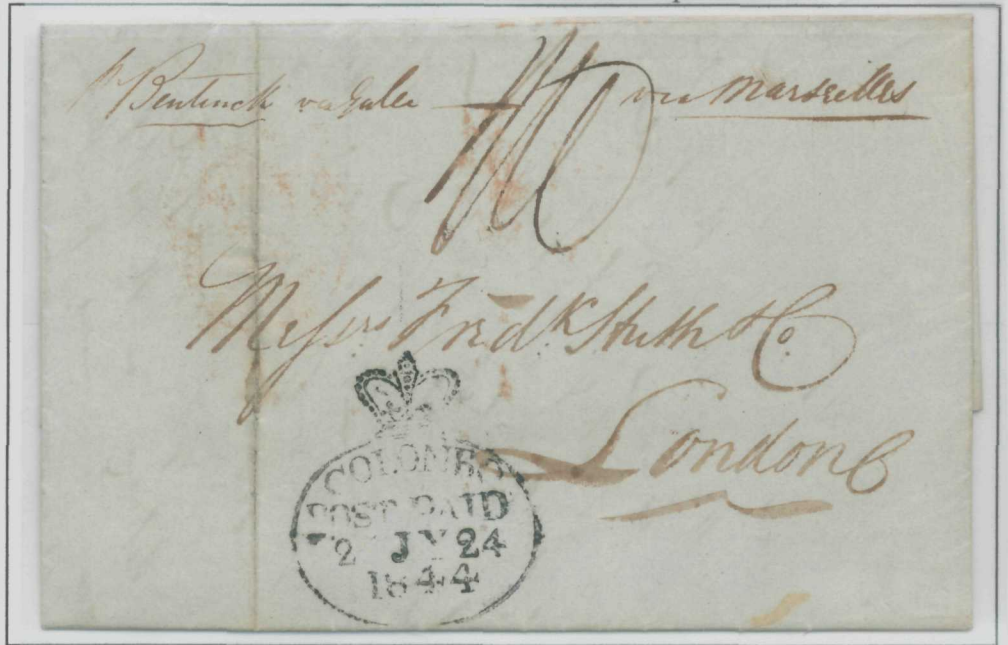 pr Bentinck via Galle
via Marseilles
Messrs Fredk Huth & Co
London
COLOMBO
POST PAID
2 JY 24
1844